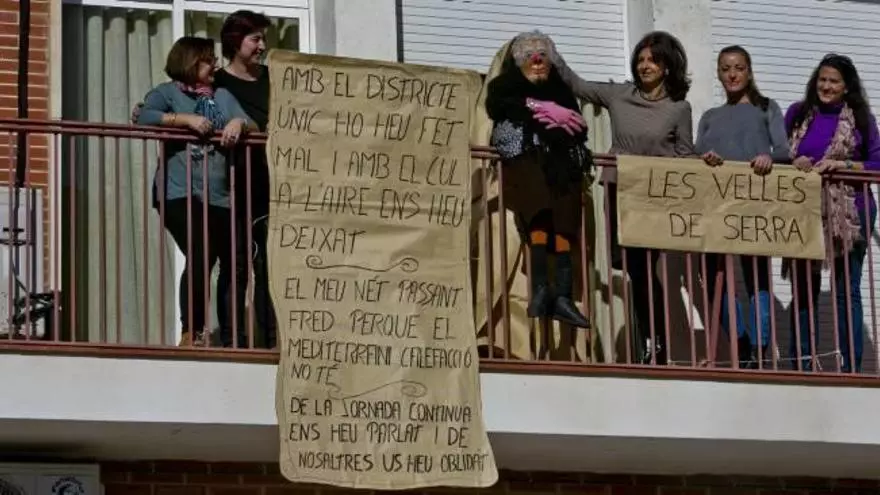 AMB EL DISTRICTE
ÚNIC HO HEU FET
MAL I AMB EL CUL
A L'AIRE ENS HEU
DEIXAT
EL MEU NÉT PASSANT
FRED PERQUE EL
MEDITERRÀNI CALEFACCIÓ
NO TÉ
DE LA JORNADA CONTINUA
ENS HEU PARLAT I DE
NOSALTRES US HEU OBLIDAT
LES VELLES
DE SERRA